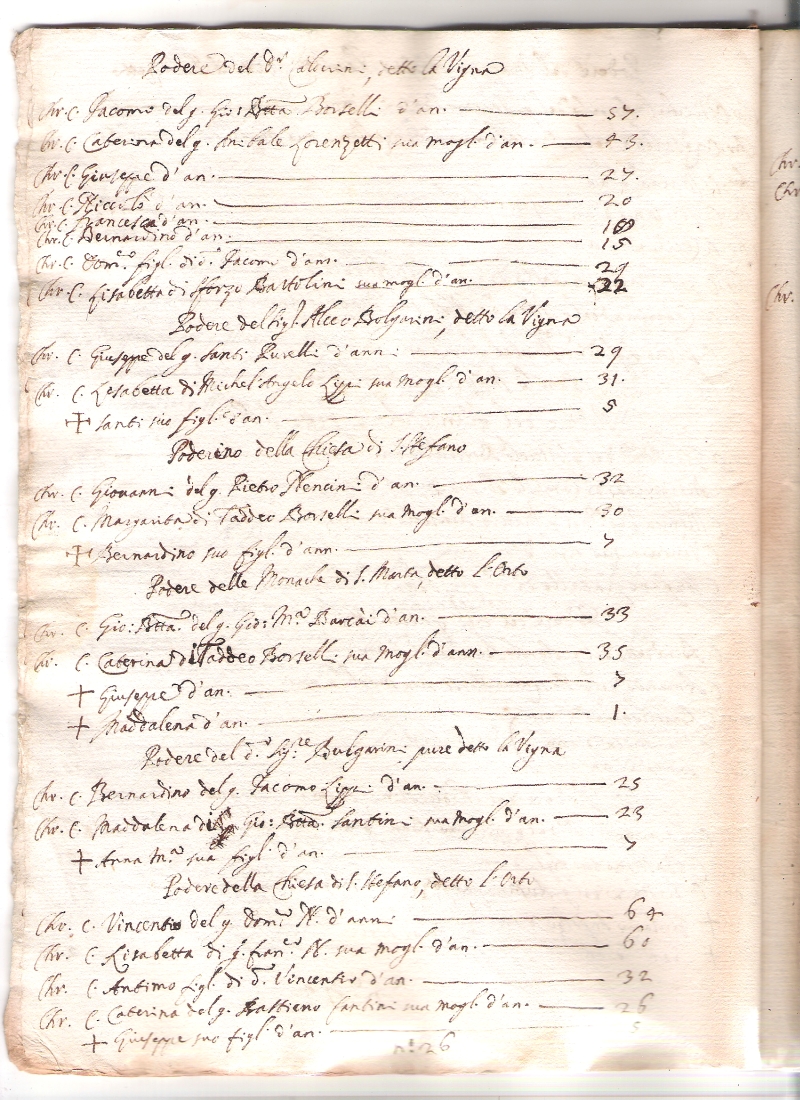 Podere del Dr. Calurini, detto la Vigna
Chr. C. Jacomo del q. Gio: Btta Borselli d'an. 57.
Chr. C. Caterina del q. Anibale Lorenzetti sua mogl. d'an. 43.
Chr. C. Giuseppe d'an. 27.
Chr. C. Niccolò d'an. 20
Chr. C. Francesca d'an.
Chr. C. Bernardino d'an. 15
Chr. C. Dom.co figl. di d.o Jacomo d'ann. 29
Chr. C. Lisabetta di Sforzo Bartolini sua mogl. d'an. 22
Podere del Sig.r Alceo Bolgarini, detto la Vigna
Chr. C. Giuseppe del q. Santi Purelli d'anni 29
Chr. C. Lesabetta di Michel'Angelo Lippi sua mogl. d'an. 31.
+ Santi suo figl. d'an. 5
Poderino della Chiesa di S. Stefano
Chr. C. Giovanni del q. Pietro Nencini d'an. 32
Chr. C. Margarita di Taddeo Borselli sua mogl. d'an. 30
+ Bernardino suo figl. d'ann. 7
Podere delle Monache di S. Marta, detto l'Orto
Chr. C. Gio: Btta del q. Gio: M.a Barcai d'an. 33
Chr. C. Caterina di Taddeo Borselli sua mogl. d'ann. 35
+ Giuseppe d'an. 7
+ Maddalena d'an. 1.
Podere del d.o Sig.re Bulgarini pure detto la Vigna
Chr. C. Bernardino del q. Jacomo Lippi d'an. 25
Chr. C. Maddalena di Gio: Btta Santini sua mogl. d'an. 23
+ Anna M.a sua figl. d'an. 7
Podere della Chiesa di S. Stefano, detto l'Orto
Chr. C. Vincentio del q. Dom.co N. d'anni 64
Chr. C. Lisabetta di q. Fran.co N. sua mogl. d'an. 60
Chr. C. Antimo figl. di d.o Vincentio d'an. 32
Chr. C. Caterina del q. Bastiano Santini sua mogl. d'an. 26
+ Giuseppe suo figl. d'an. 5
n.o 26
Chr.
Chr
Chr.